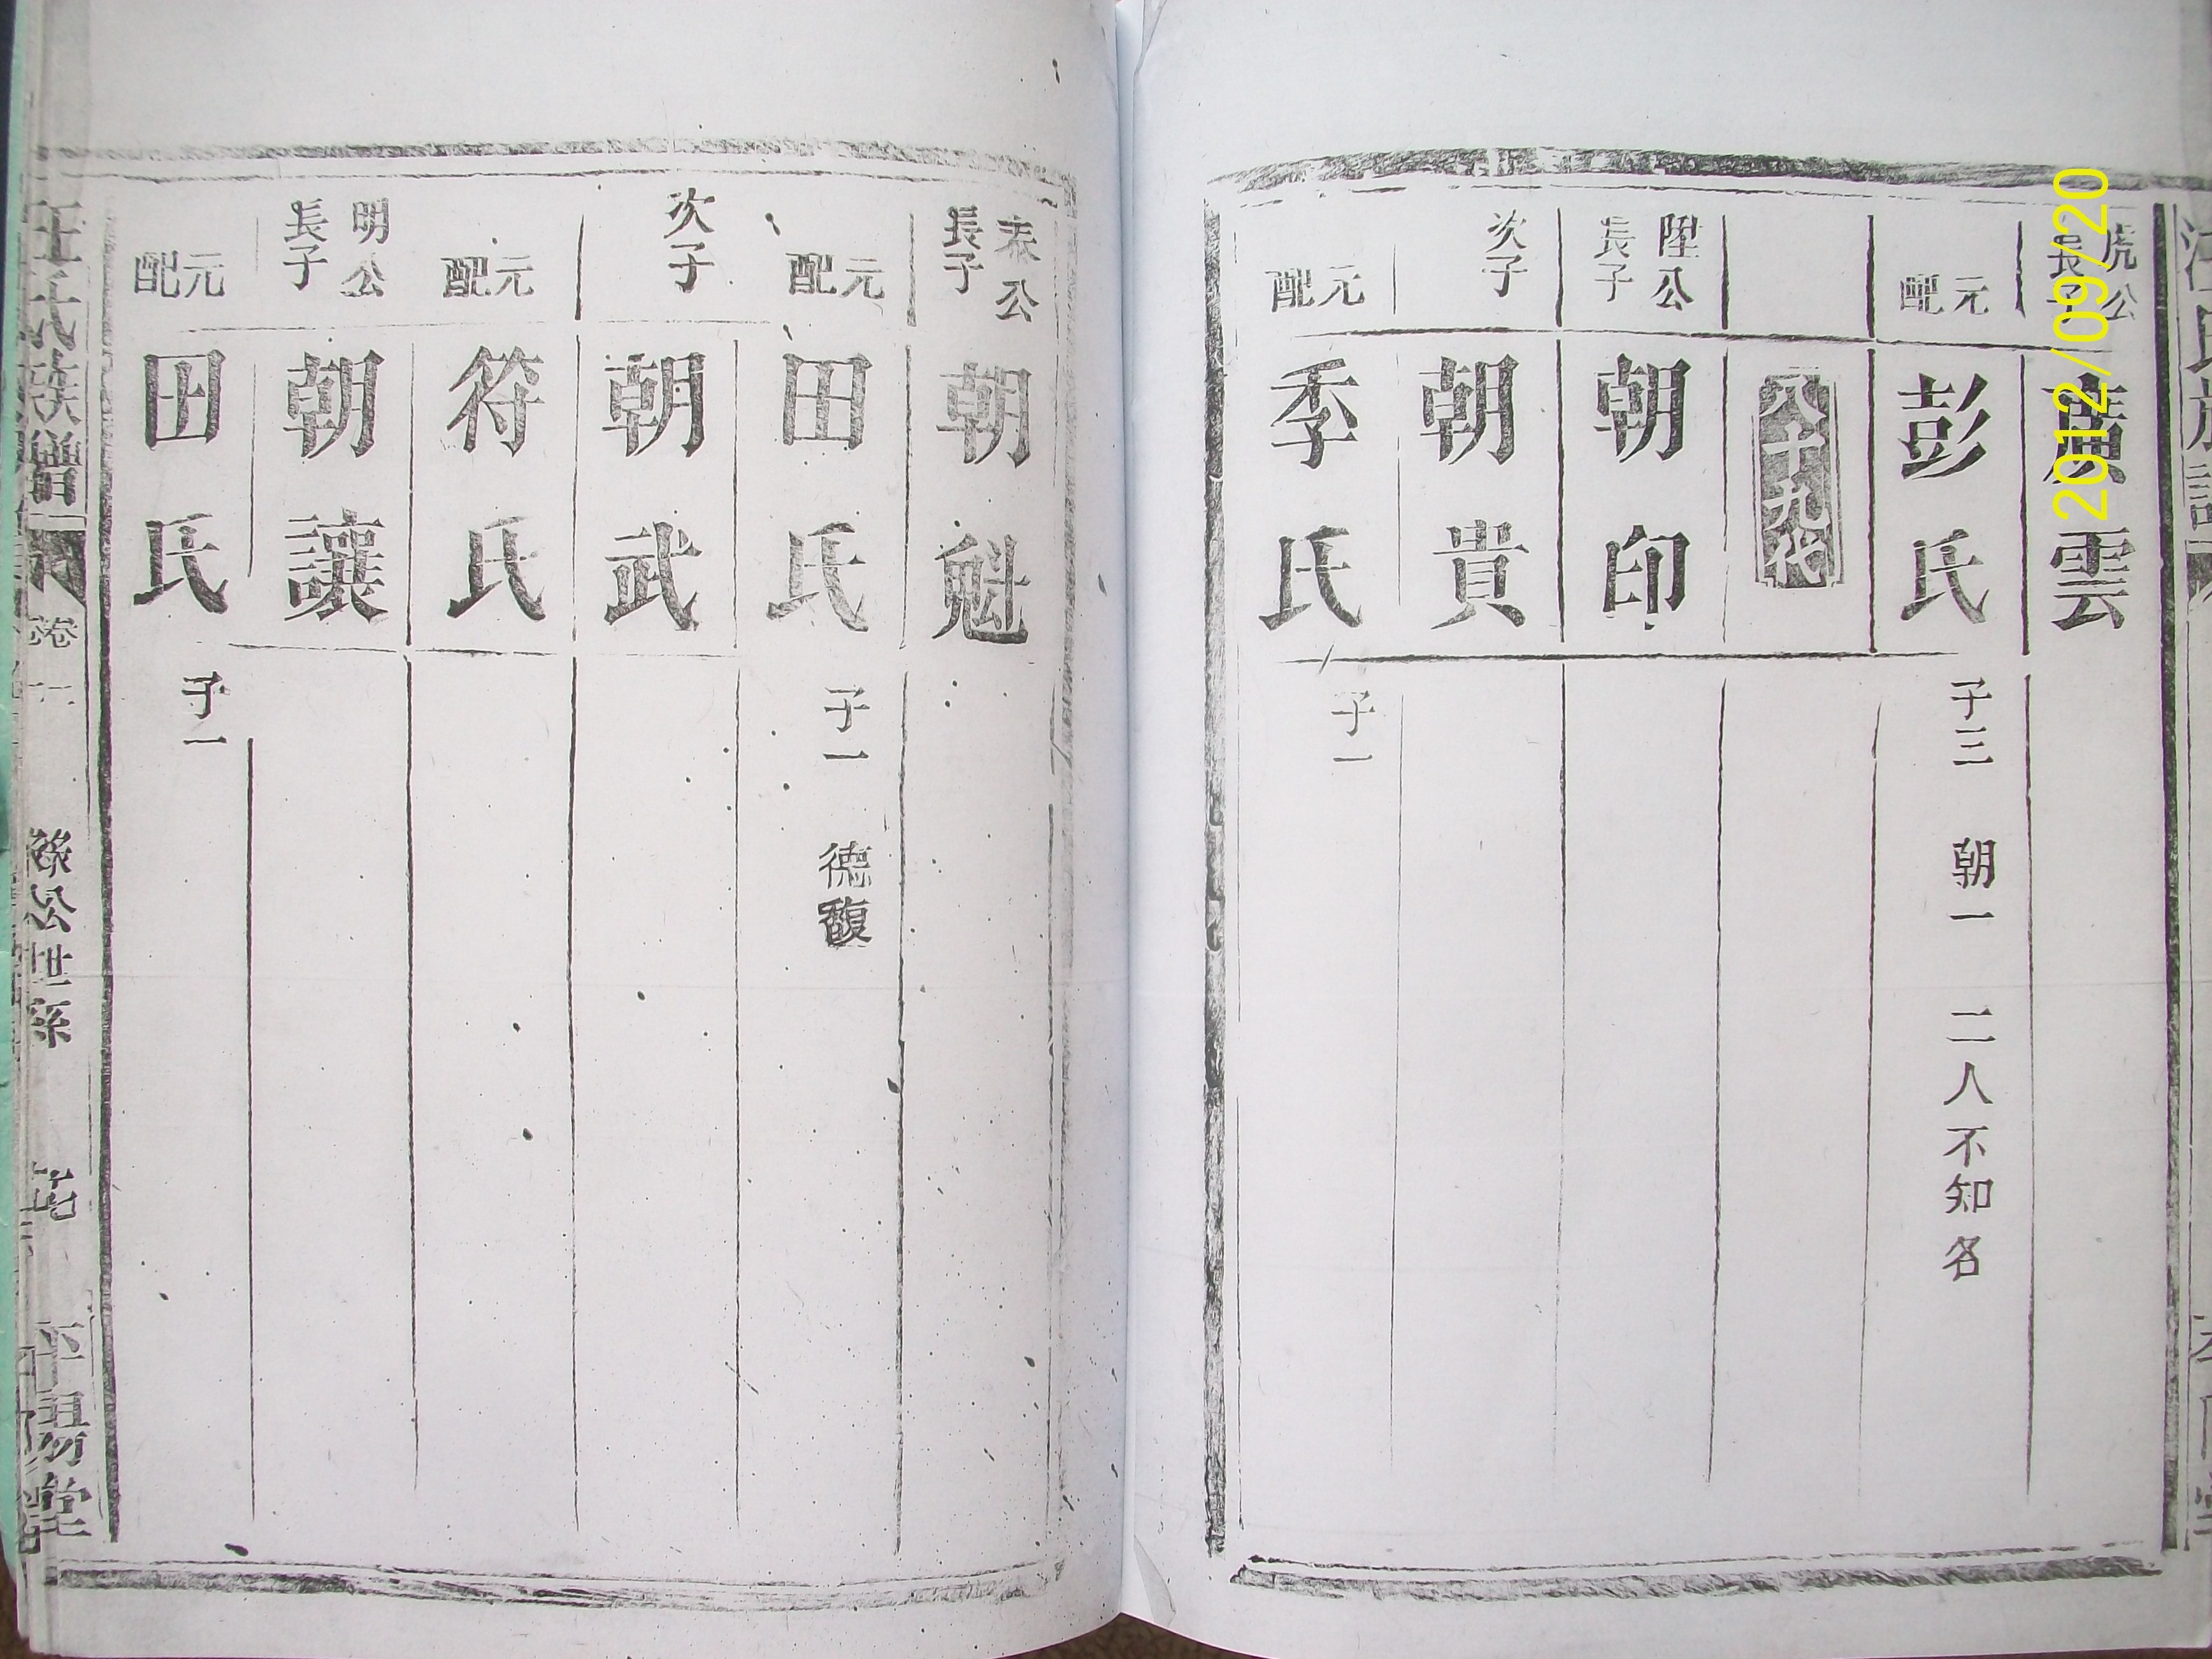 虎公長子 廣雲
元配 彭氏 子三 朝一 二人不知名
八十九代
陞公長子 朝印
次子 朝貴
元配 季氏 子一
公長子 朝魁
元配 田氏 子一 德馥
次子 朝武
元配 符氏
明公長子 朝讓
元配 田氏 子一
汪氏族譜 卷 公世系 平陽堂
2012/09/20